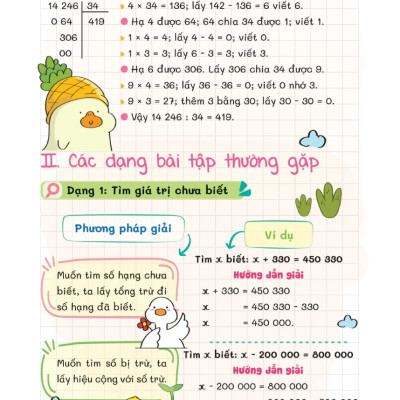 14 246 34
4 × 34 = 136; lấy 142 - 136 = 6 viết 6.
0 64 419
Hạ 4 được 64; 64 chia 34 được 1; viết 1.
306
1 × 4 = 4; lấy 4 - 4 = 0; viết 0.
00
1 × 3 = 3; lấy 6 - 3 = 3; viết 3.
Hạ 6 được 306. Lấy 306 chia 34 được 9.
9 × 4 = 36; lấy 36 - 36 = 0; viết 0 nhớ 3.
9 × 3 = 27; thêm 3 bằng 30; lấy 30 - 30 = 0.
Vậy 14 246 : 34 = 419.
II. Các dạng bài tập thường gặp
Dạng 1: Tìm giá trị chưa biết
Phương pháp giải
Ví dụ
Muốn tìm số hạng chưa
biết, ta lấy tổng trừ đi
số hạng đã biết.
Tìm x biết: x + 330 = 450 330
Hướng dẫn giải
x + 330 = 450 330
x = 450 330 - 330
x = 450 000.
Muốn tìm số bị trừ, ta
lấy hiệu cộng với số trừ.
Tìm x biết: x - 200 000 = 800 000
Hướng dẫn giải
x - 200 000 = 800 000